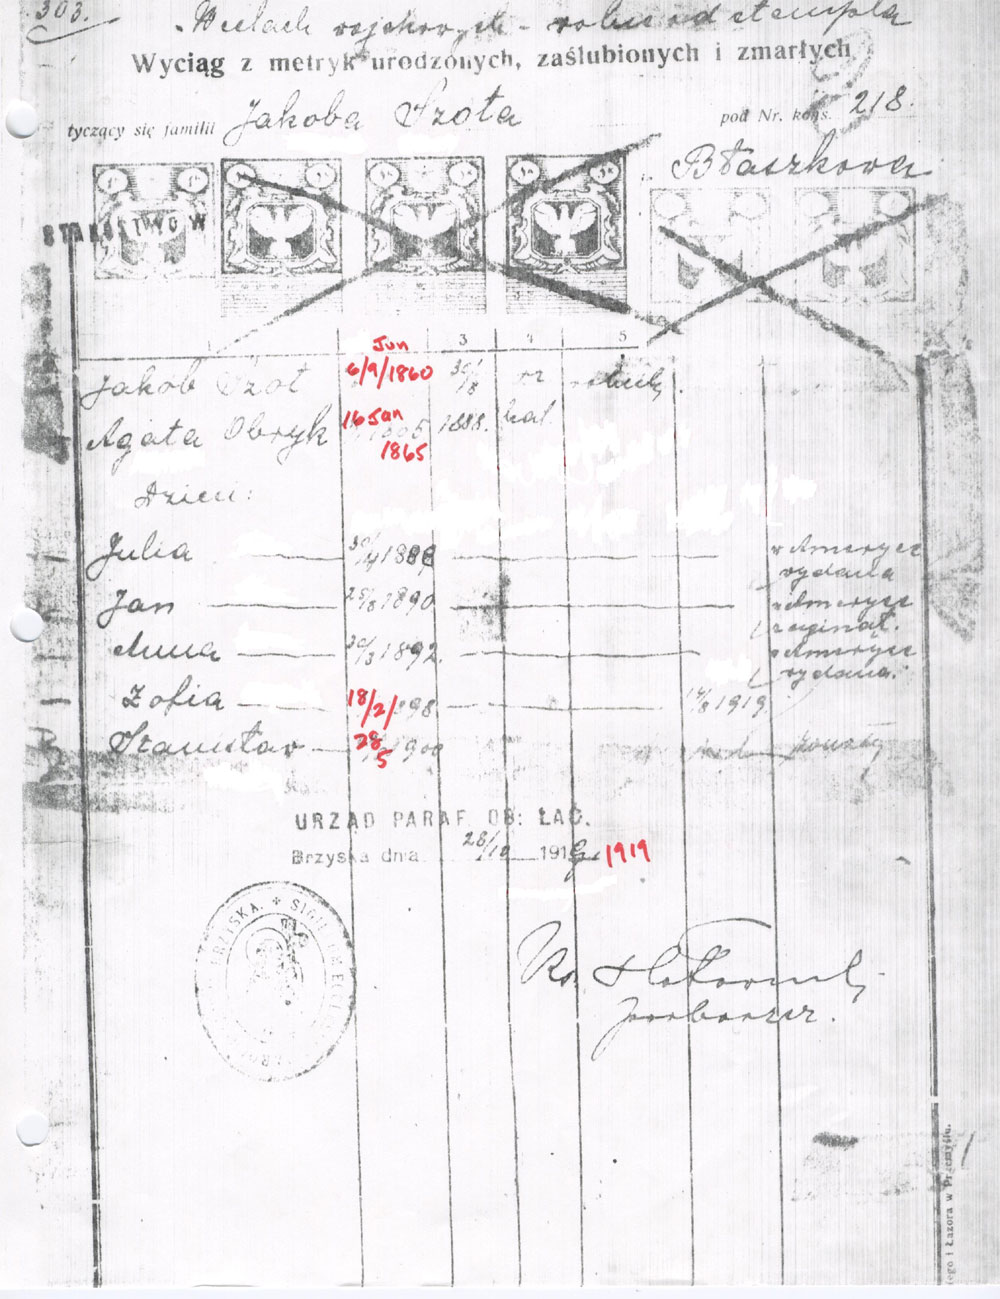 303.
w celach wojskowych - wolne od stempla
Wyciąg z metryk urodzonych, zaślubionych i zmarłych
tyczący się familii Jakoba Szota pod Nr. kons. 218.
Błaszkowa
STAROSTWO W
3 4 5
Jun
Jakób Szot 6/9/1860 30/8
Agata Obryk 16 Jan 1865 1888.
1865
Dzieci:
Julia 1888 w Ameryce
wydana
Jan 25/8 1890 w Ameryce
zaginął.
Anna 30/3 1892. w Ameryce
wydana.
Zofia 18/2/ 98 1919
Stanisław 28/5 1900
URZĄD PARAF. OB: ŁAC.
Brzyska dnia 28/10 1919 1919
BRZYSKA. + SIGIL
Ks.
proboszcz.
i Łazora w Przemyślu.